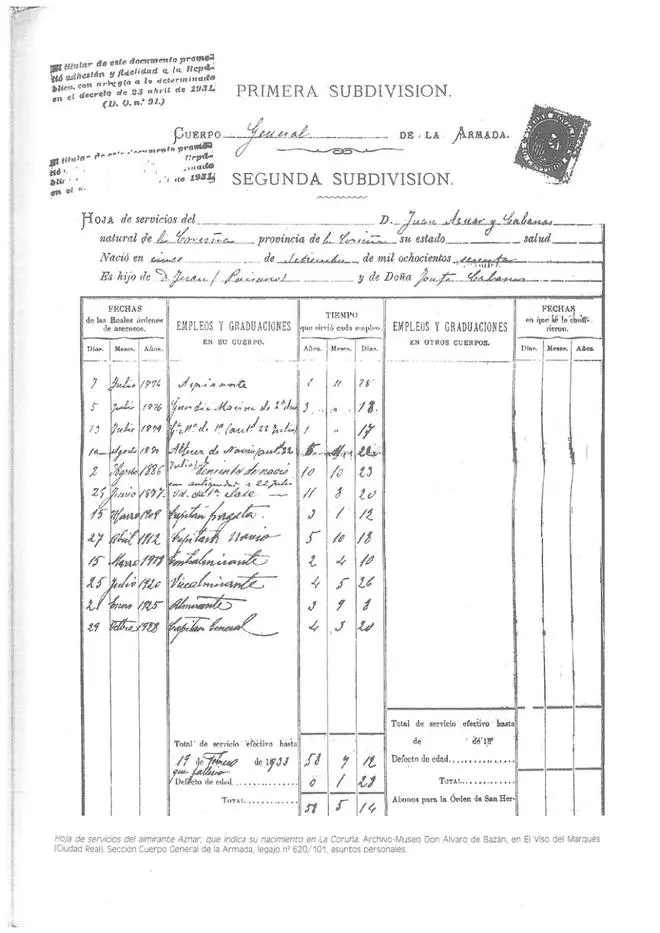 El titular de este documento prome-
tió adhesión y fidelidad a la Repú-
blica, con arreglo a lo determinado
en el decreto de 23 abril de 1931.
(D. O. n.º 91.)
PRIMERA SUBDIVISION.
CUERPO General DE LA ARMADA.
El titular de este documento prome
tió Repú-
blic minado
en el de 1931
SEGUNDA SUBDIVISION.
HOJA de servicios del D. Juan Aznar y Cabanas
natural de la Coruña provincia de la Coruña su estado salud
Nació en cinco de Setiembre de mil ochocientos sesenta
Es hijo de D. Juan y de Doña Cabanas
FECHAS
de las Reales órdenes
de ascensos.
Días. Meses. Años.
EMPLEOS Y GRADUACIONES
EN SU CUERPO.
TIEMPO
que sirvió cada empleo.
Años. Meses. Días.
EMPLEOS Y GRADUACIONES
EN OTROS CUERPOS.
FECHAS
en que se le confi-
rieron.
Días. Meses. Años.
7 Julio 1874 Aspirante 1 11 28
5 Julio 1876 Guardia Marina de 2ª 3 " 18
13 Julio 1879 Gª Mª de 1ª (antd 22 Julio) 1 " 17
10 Agosto 1880 Alferez de Navio (antd 22 Julio) 5 11 22
2 Agosto 1886 Teniente de navio 10 10 23
con antigüedad 22 Julio
25 Junio 1897 Id. de 1ª clase 11 8 20
15 Marzo 1909 Capitán fragata 3 1 12
27 Abril 1912 Capitán Navio 5 10 18
15 Marzo 1918 Contralmirante 2 4 10
25 Julio 1920 Vicealmirante 4 5 26
21 Enero 1925 Almirante 3 9 8
29 1928 Capitan General 4 3 20
Total de servicio efectivo hasta
19 de Febrero de 1933 58 7 12
que falleció
Defecto de edad 0 1 28
TOTAL 58 5 14
Total de servicio efectivo hasta
de de 18
Defecto de edad
TOTAL
Abonos para la Órden de San Her-
Hoja de servicios del almirante Aznar, que indica su nacimiento en La Coruña. Archivo-Museo Don Álvaro de Bazán, en El Viso del Marqués
(Ciudad Real). Sección Cuerpo General de la Armada, legajo nº 620/101, asuntos personales.